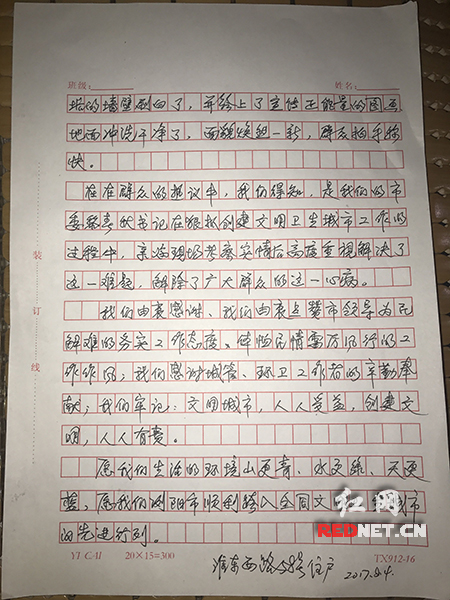 班级: 姓名:
垢的墙壁刷白了，并绘上了宣传正能量的图画
地面冲洗干净了，面貌焕然一新，群众拍手称
快。
在在群众的热议中，我们得知，是我们的市
委黎春秋书记在狠抓创建文明卫生城市工作的
过程中，亲临现场考察实情后高度重视解决了
这一难题，解除了广大群众的这一心病。
我们由衷感谢、我们由衷点赞市领导为民
解难的务实工作态度、体恤民情雷厉风行的工
作作风；我们感谢城管、环卫工作者的辛勤奉
献；我们牢记：文明城市，人人受益，创建文
明，人人有责。
愿我们生活的环境山更青、水更绿、天更
蓝，愿我们浏阳市顺利跨入全国文 城市
的先进行列。
装
订
线
红网
REDNET.CN
YI C-II 20×15=300 TX912-16
淮东西路 号住户 2017.8.4.